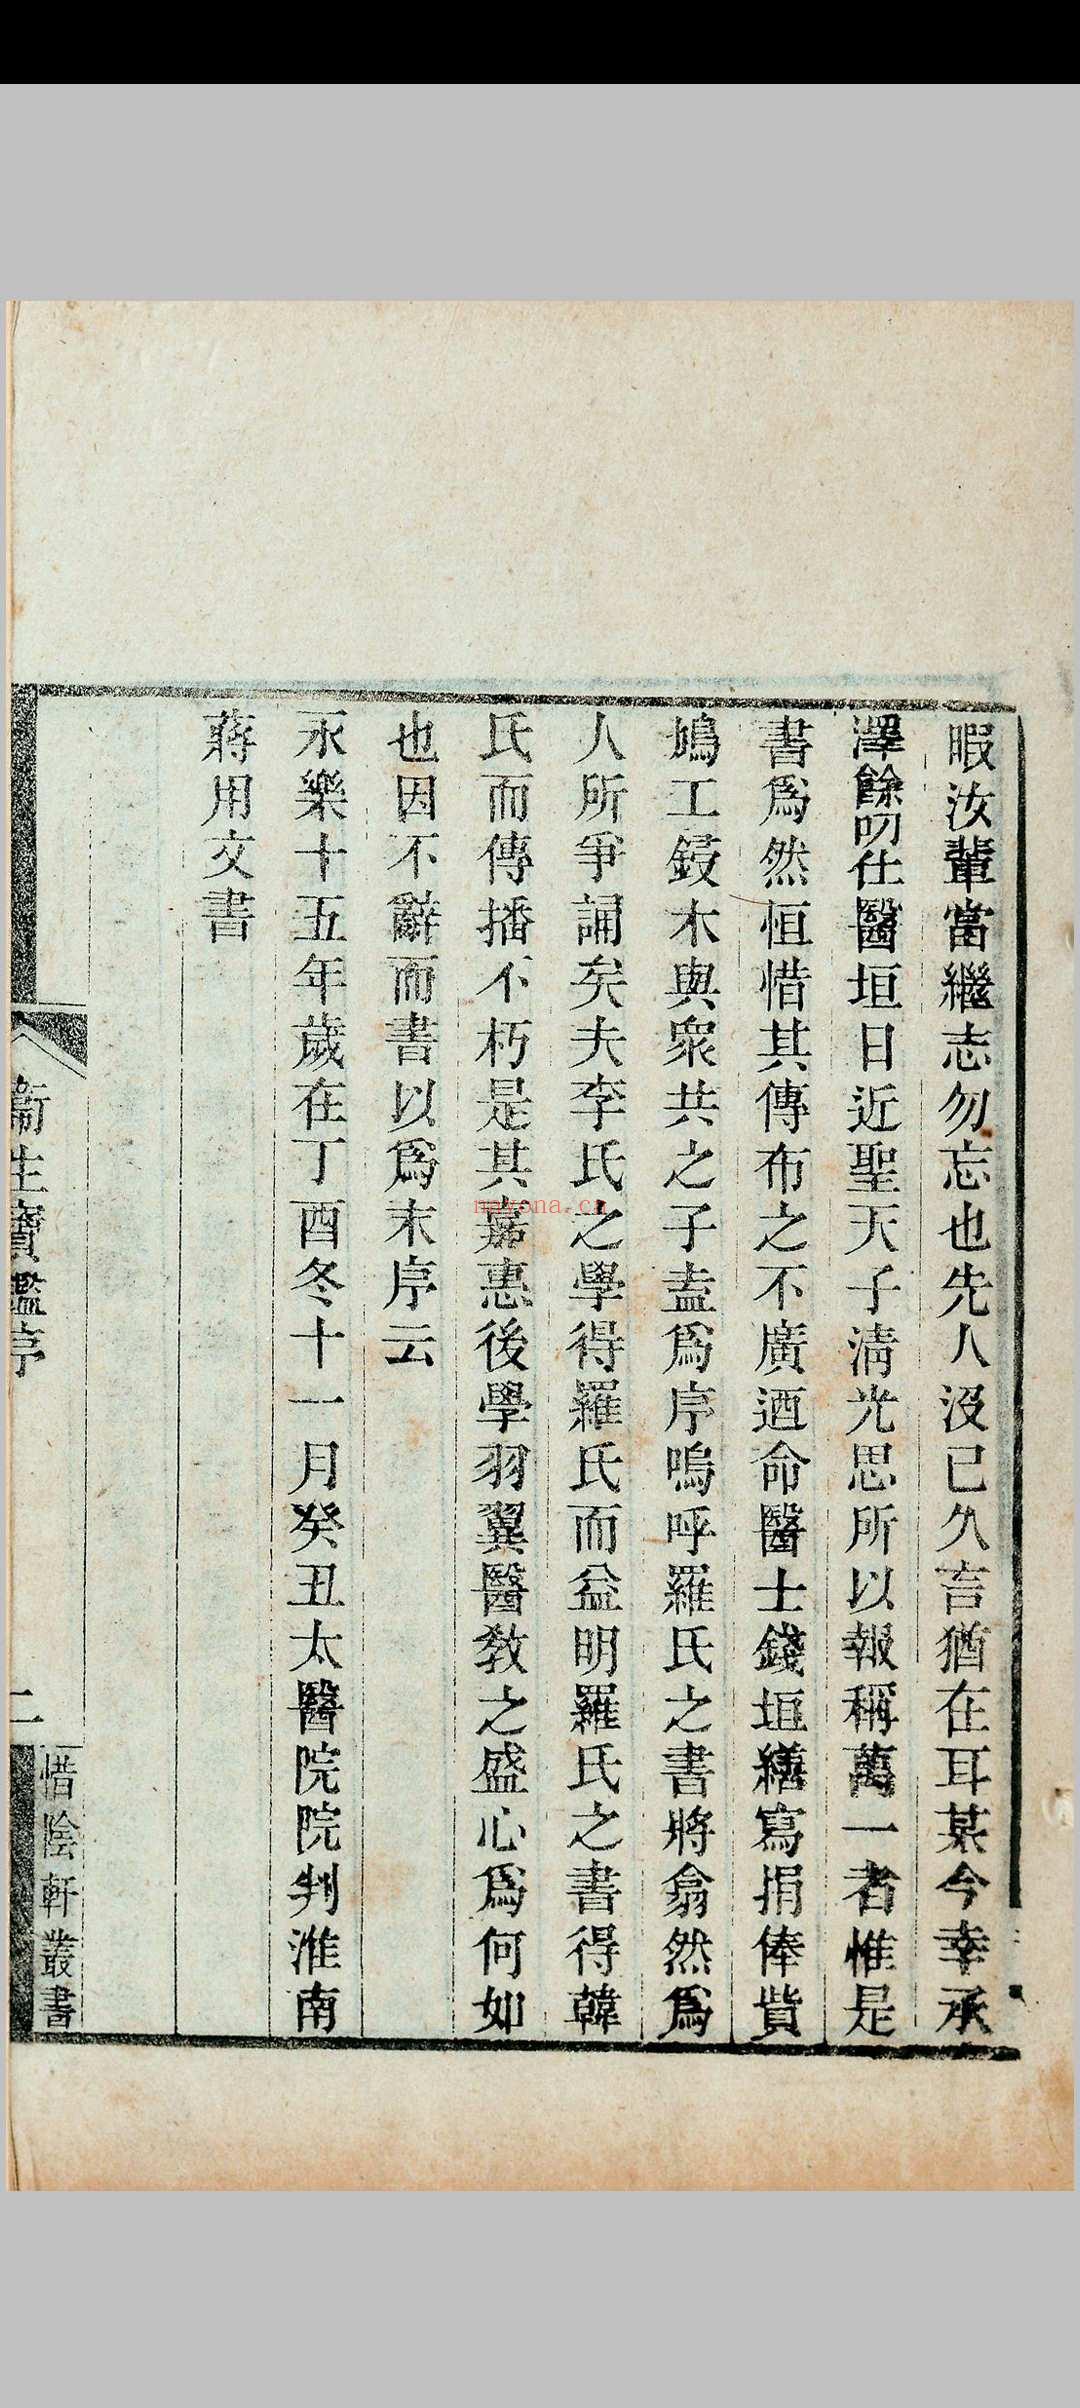 暇汝輩當繼志勿忘也先人沒已久言猶在耳某今幸承
澤餘叨仕醫垣日近聖天子清光思所以報稱萬一者惟是
書爲然恒惜其傳布之不廣迺命醫士錢垣繕寫捐俸貲
鳩工鋟木與衆共之子盍爲序嗚呼羅氏之書將翕然爲
人所爭誦矣夫李氏之學得羅氏而益明羅氏之書得韓
氏而傳播不朽是其嘉惠後學羽翼醫教之盛心爲何如
也因不辭而書以爲末序云
永樂十五年歲在丁酉冬十一月癸丑太醫院院判淮南
蔣用文書
衞生寶鑑序
二
惜陰軒叢書
nayona.ca